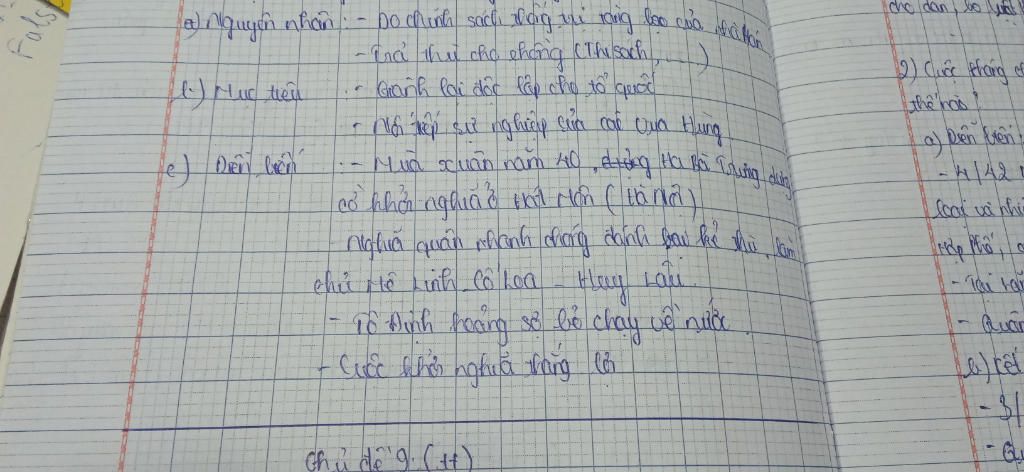 a) Nguyên nhân: - Do chính sách thống trị tàng bạo của nhà Hán
- Trả thù cho chồng (Thi Sách, )
b.) Mục tiêu :- Giành lại độc lập cho tổ quốc
- Nối tiếp sự nghiệp của các vua Hùng
c) Diễn biến :- Mùa xuân năm 40, Hai Bà Trưng dựng
cờ khởi nghĩa ở Hát Môn (Hà Nội)
- Nghĩa quân nhanh chóng đánh bại kẻ thù, làm
chủ Mê Linh - Cổ Loa - Luy Lâu.
- Tô Định hoảng sợ bỏ chạy về nước.
- Cuộc khởi nghĩa thắng lợi
Chủ đề 9. (tt)
cho dân,
2) Cuộc kháng
thế nào?
a) Diễn biến
- 4/42
- Quân
b) Kết